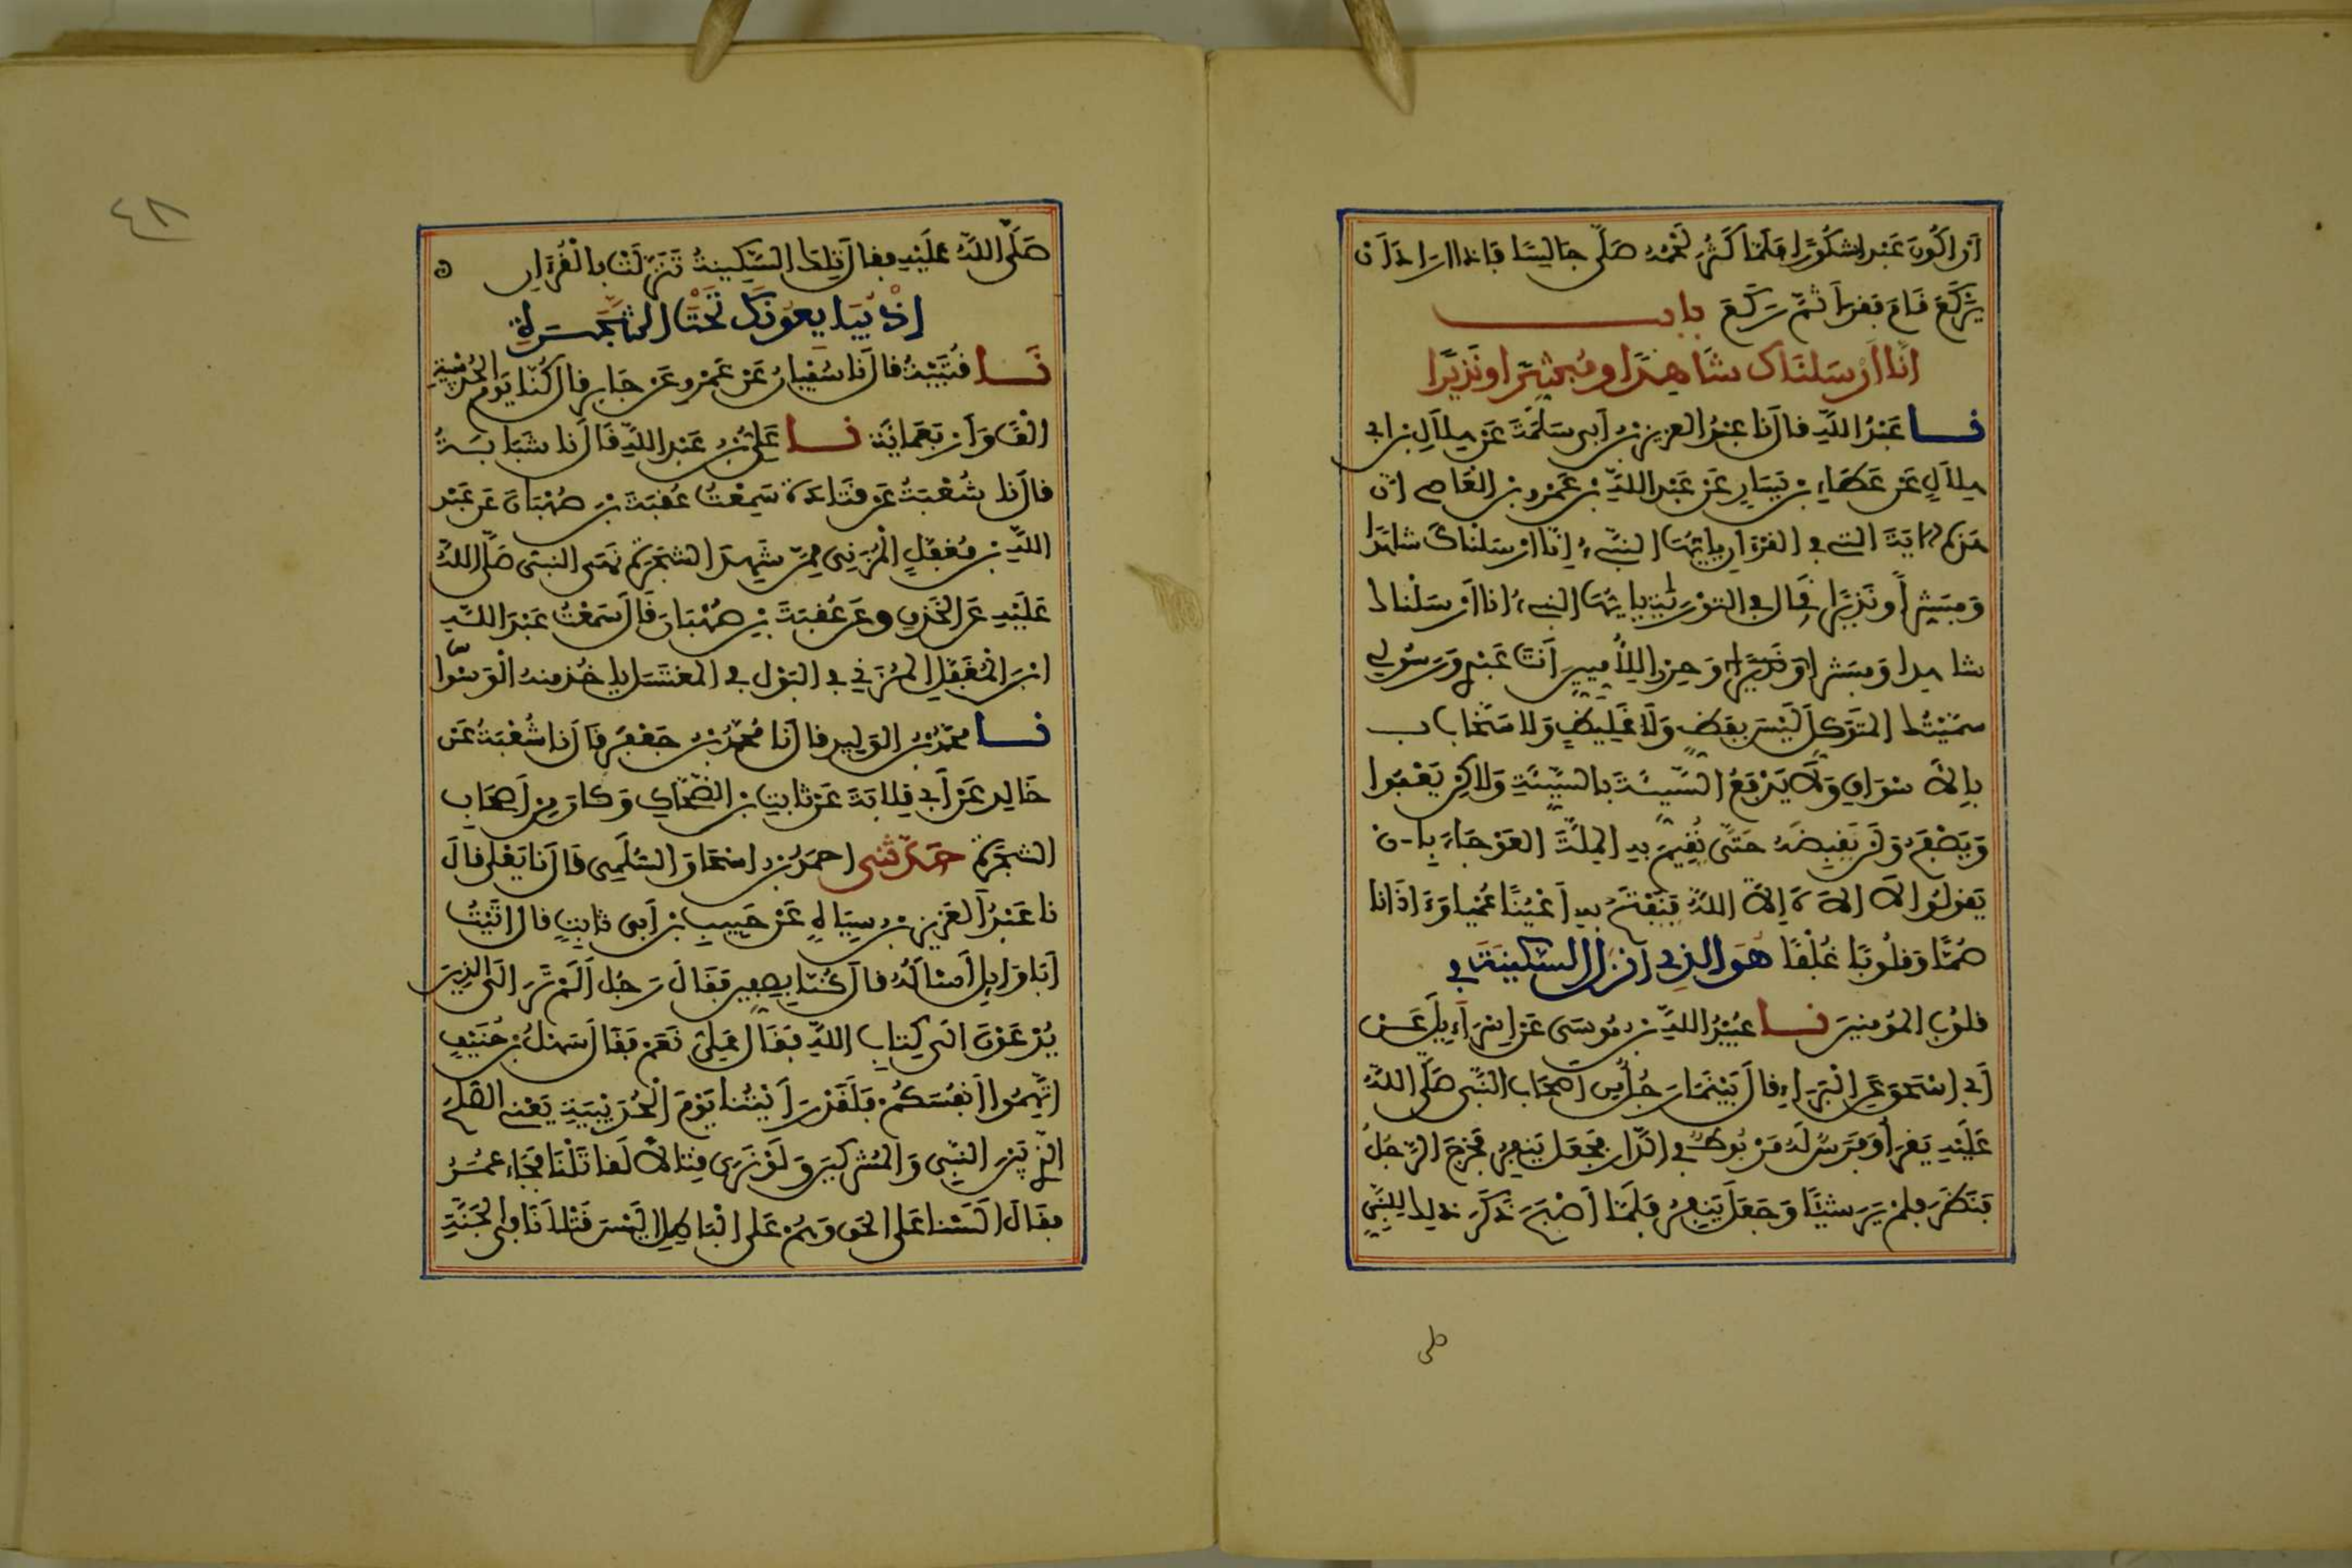 أن أكون عبدا شكورا فلما كثر لحمه صلى جالسا فإذا أراد أن
يركع قام فقرأ ثم ركع باب
انا أرسلناك شاهدا ومبشرا ونذيرا
نا عبد الله قال نا عبد العزيز بن أبي سلمة عن هلال بن أبي
هلال عن عطاء بن يسار عن عبد الله بن عمرو بن العاصي ان
هذه الاية التي في القرءان يايها النبيء إنا أرسلناك شاهدا
ومبشرا ونذيرا قال في التورية يايها النبيء انا أرسلناك
شاهدا ومبشرا ونذيرا وحرزا للأميين أنت عبدي ورسولي
سميتك المتوكل ليس بفظ ولا غليظ ولا سخاب
بالاسواق ولا يدفع السيئة بالسيئة ولاكن يعفوا
ويصفح ولن يقبضه حتى يقيم به الملة العوجاء بان
يقولوا لا اله الا الله فيفتح به أعينا عميا وءاذانا
صما وقلوبا غلفا هو الذي أنزل السكينة في
قلوب المومنين نا عبيد الله بن موسى عن إسراءيل عن
أبي إسحق عن البراء قال بينما رجل من أصحاب النبي صلى الله
عليه يقرأ وفرس له مربوط في الدار فجعل ينفر فخرج الرجل
فنظر فلم ير شيئا وجعل ينفر فلما أصبح ذكر ذلك للنبي
صلى
صلى الله عليه فقال تلك السكينة تنزلت بالقرءان
إذ يبايعونك تحت الشجرة
نا قتيبة قال نا سفيان عن عمرو عن جابر قال كنا يوم الحديبية
الفا وأربعمائة نا علي بن عبد الله قال نا شبابة
قال نا شعبة عن قتادة سمعت عقبة بن صهبان عن عبد
الله بن مغفل المزني ممن شهد الشجرة نهى النبي صلى الله
عليه عن الخذف وعن عقبة بن صهبان قال سمعت عبد الله
ابن المغفل المزني في البول في المغتسل ياخذ منه الوسواس
نا محمد بن الوليد قال نا محمد بن جعفر قال نا شعبة عن
خالد عن أبي قلابة عن ثابت بن الضحاك وكان من أصحاب
الشجرة حدثني احمد بن اسحاق السلمي قال نا يعلى قال
نا عبد العزيز بن سياه عن حبيب بن أبي ثابت قال اتيت
أبا وايل أسأله قال كنا بصفين فقال رجل ألم تر الى الذين
يدعون الى كتاب الله فقال علي نعم فقال سهل بن حنيف
اتهموا أنفسكم فلقد رأيتنا يوم الحديبية يعني الصلح
الذي بين النبي والمشركين ولو نرى قتالا لقاتلنا فجاء عمر
فقال ألسنا على الحق وهم على الباطل اليس قتلانا في الجنة
٤٨